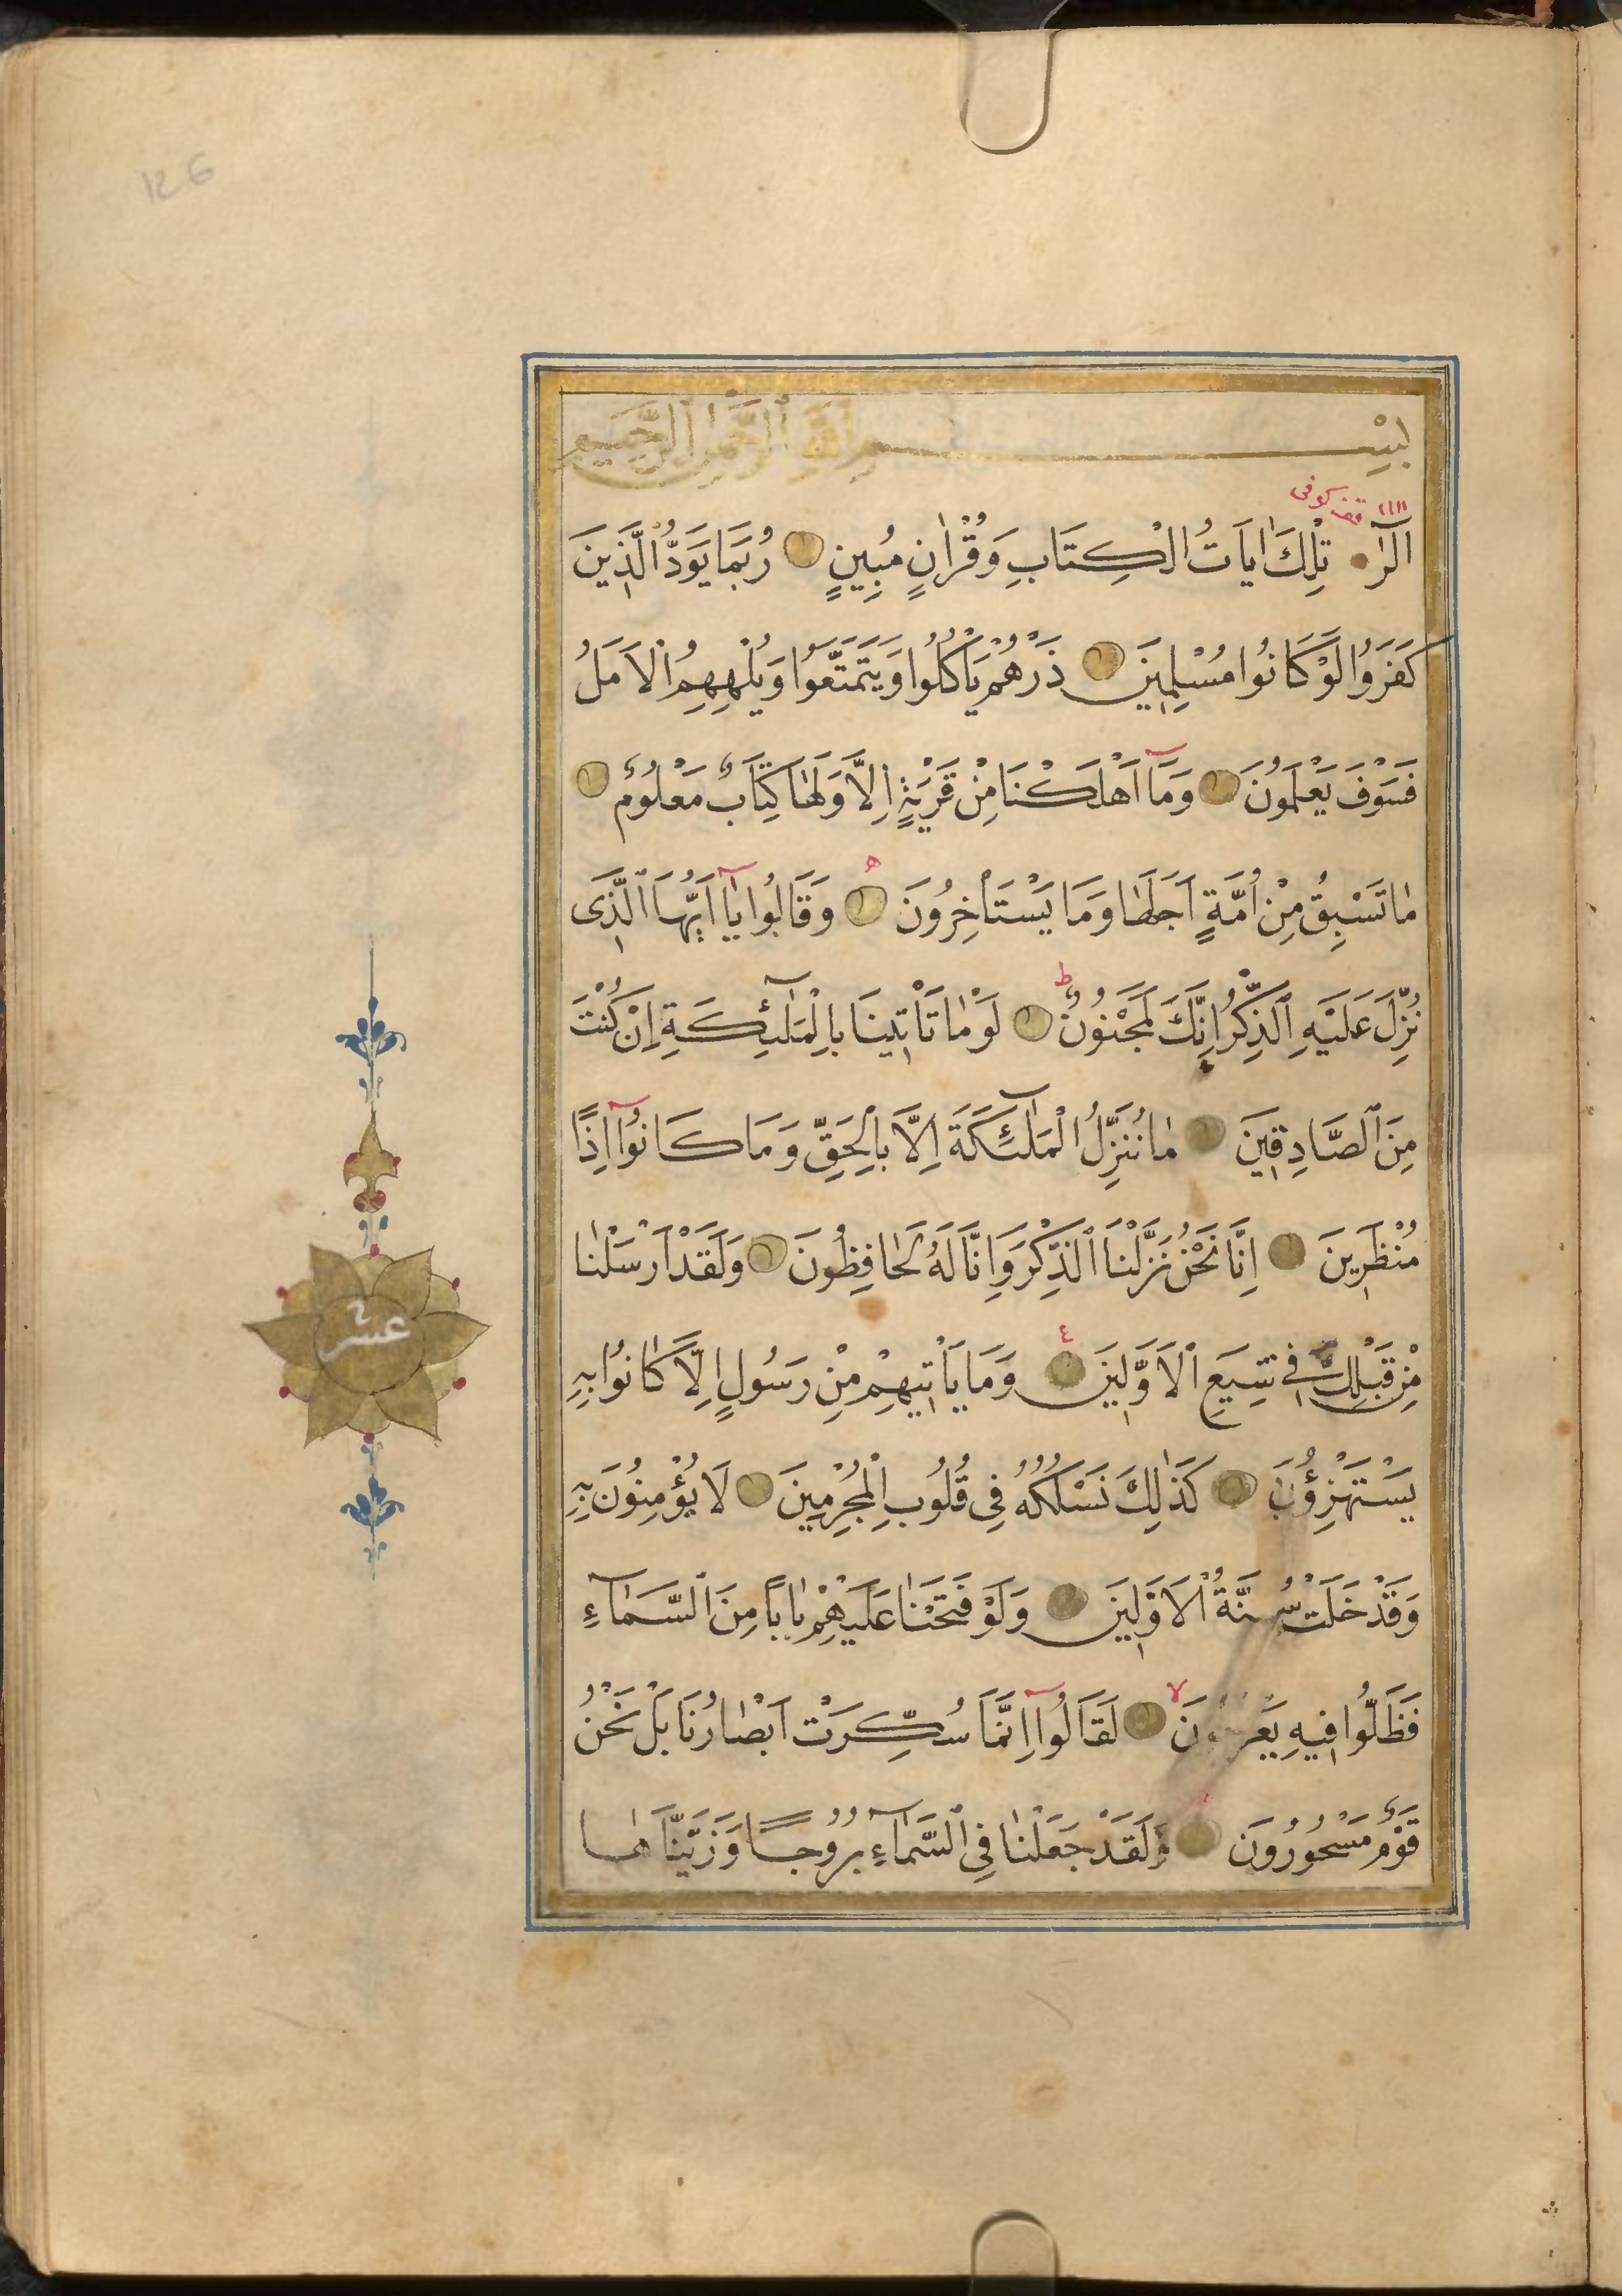 126
بِسْمِ اللَّهِ الرَّحْمٰنِ الرَّحِيمِ
قف كوفى
الٓرٰ تِلْكَ اٰيَاتُ الْكِتَابِ وَقُرْاٰنٍ مُبِينٍ رُبَمَا يَوَدُّ الَّذِينَ
كَفَرُوا لَوْ كَانُوا مُسْلِمِينَ ذَرْهُمْ يَأْكُلُوا وَيَتَمَتَّعُوا وَيُلْهِهِمُ الْاَمَلُ
فَسَوْفَ يَعْلَمُونَ وَمَآ اَهْلَكْنَا مِنْ قَرْيَةٍ اِلَّا وَلَهَا كِتَابٌ مَعْلُومٌ
مَا تَسْبِقُ مِنْ اُمَّةٍ اَجَلَهَا وَمَا يَسْتَأْخِرُونَ وَقَالُوا يَآ اَيُّهَا الَّذِى
نُزِّلَ عَلَيْهِ الذِّكْرُ اِنَّكَ لَمَجْنُونٌ لَوْ مَا تَأْتِينَا بِالْمَلٰٓئِكَةِ اِنْ كُنْتَ
مِنَ الصَّادِقِينَ مَا نُنَزِّلُ الْمَلٰٓئِكَةَ اِلَّا بِالْحَقِّ وَمَا كَانُوٓا اِذًا
مُنْظَرِينَ اِنَّا نَحْنُ نَزَّلْنَا الذِّكْرَ وَاِنَّا لَهُ لَحَافِظُونَ وَلَقَدْ اَرْسَلْنَا
مِنْ قَبْلِكَ فِى شِيَعِ الْاَوَّلِينَ وَمَا يَأْتِيهِمْ مِنْ رَسُولٍ اِلَّا كَانُوا بِهِ
يَسْتَهْزِؤُنَ كَذٰلِكَ نَسْلُكُهُ فِى قُلُوبِ الْمُجْرِمِينَ لَا يُؤْمِنُونَ بِهِ
وَقَدْ خَلَتْ سُنَّةُ الْاَوَّلِينَ وَلَوْ فَتَحْنَا عَلَيْهِمْ بَابًا مِنَ السَّمَآءِ
فَظَلُّوا فِيهِ يَعْرُجُونَ لَقَالُوٓا اِنَّمَا سُكِّرَتْ اَبْصَارُنَا بَلْ نَحْنُ
قَوْمٌ مَسْحُورُونَ وَلَقَدْ جَعَلْنَا فِى السَّمَآءِ بُرُوجًا وَزَيَّنَّاهَا
عشر